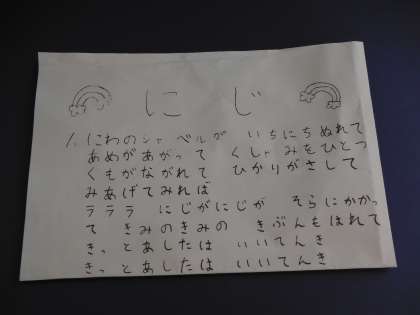 にじ
1. にわのシャベルが いちにちぬれて
あめがあがって くしゃみをひとつ
くもがながれて ひかりがさして
みあげてみれば
ラララ にじがにじが そらにかかっ
て きみのきみの きぶんもはれて
きっとあしたは いいてんき
きっとあしたは いいてんき